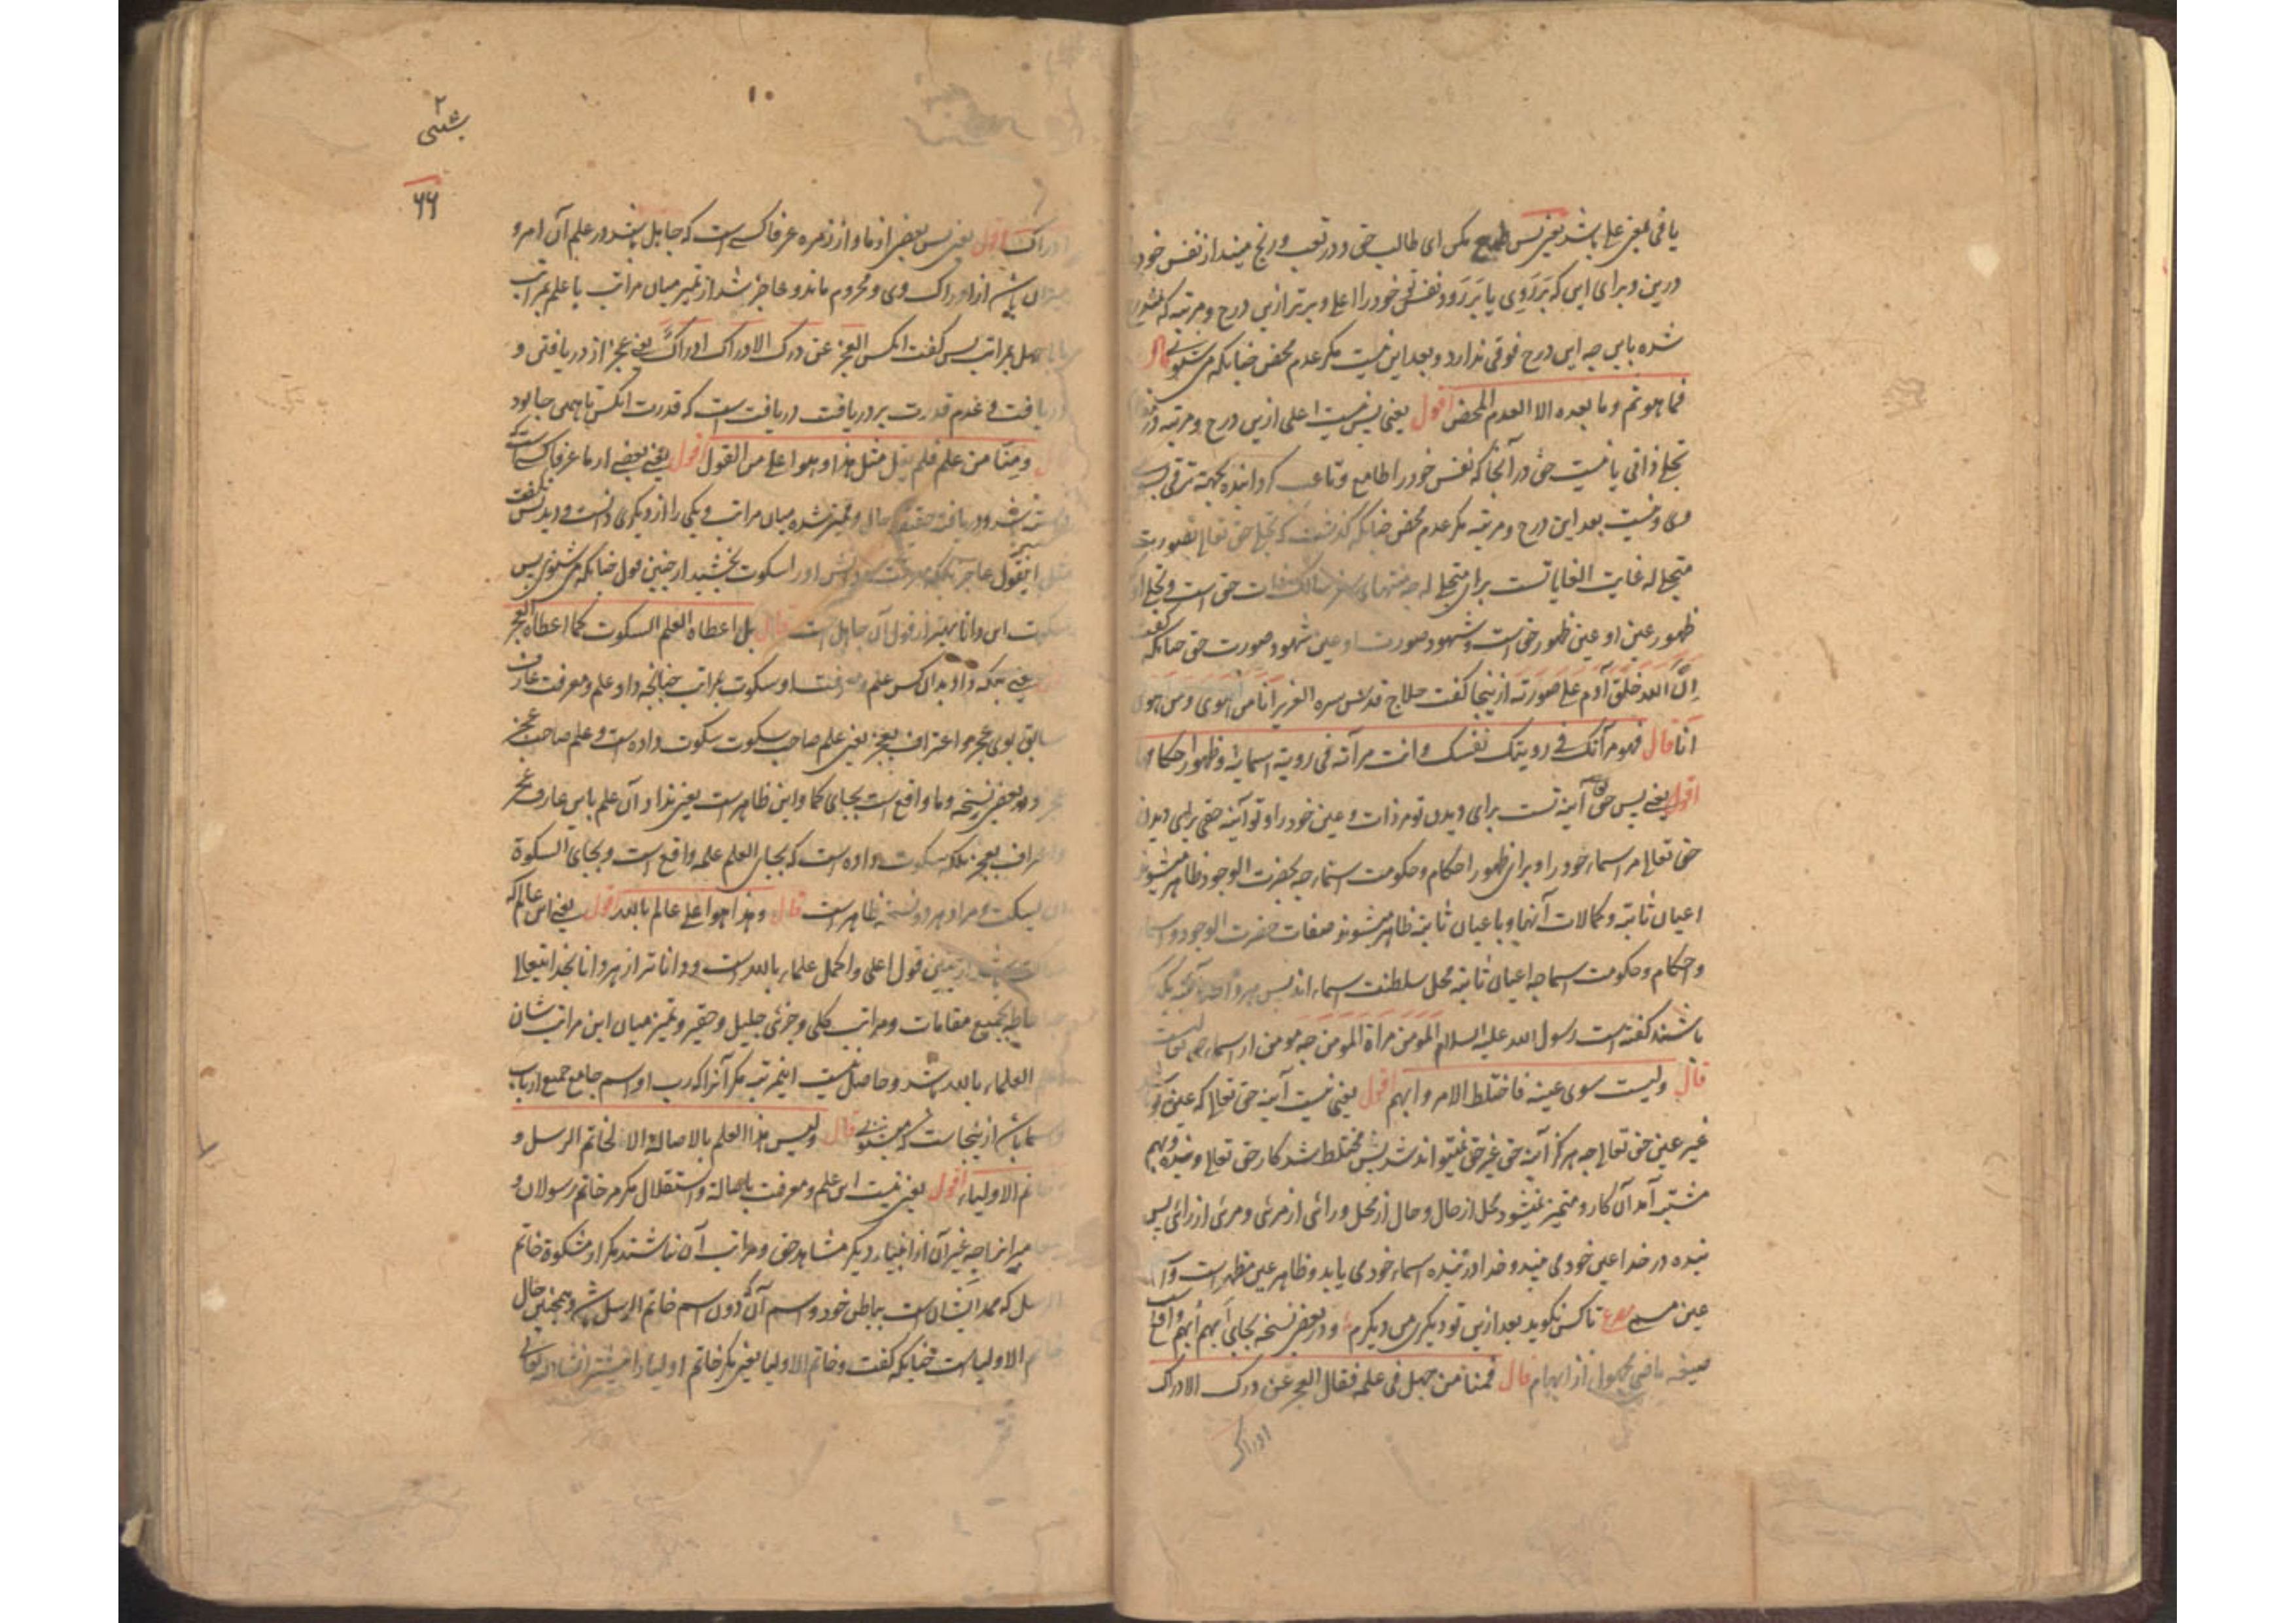 یا فی بمعنی علی باشد یعنی پس طمع مکن ای طالب حق و در تعب و رنج میندار نفس خود
درین و برای این که بَرَوی یا بَرَود نفس تو خود را اعلی و برتر ازین درج و مرتبه که
شده باین چه این درج فوقی ندارد و بعد این نیست مگر عدم محض چنانکه می شنوی قال
فما هو ثم وما بعده الا العدم المحض اقول یعنی پس نیست اعلی ازین درج و مرتبه
تجلی ذاتی یا نیست حق در آنجا که نفس خود را طامع و تاعب گردانیده بجهته ترقی
وی و نیست بعد این درج و مرتبه مگر عدم محض چنانکه گذشت که تجلی حق تعالی بصورت
متجلی له غایت الغایاتست برای متجلی له چه منتهای سفر حق است و تجلی
ظهور عین او عین ظهور حق است و شهود صورت او عین شهود صورت حق چنانکه گفت
اِنَّ الله خلق آدم علی صورته ازینجا گفت حلاج قدس سره العزیز انا من اهوی و من اهوی
انا قال فهو مرآتک فی رویتک نفسک و انت مرآته فی رویته اسمائه و ظهور احکامها
اقول یعنی پس حق آئینه تست برای دیدن تو مر ذات و عین خود را و تو آئینه حقی برای دیدن
حق تعالی مر اسماء خود را و برای ظهور احکام و حکومت اسما چه بحضرت الوجود ظاهر میشوند
اعیان ثابته و کمالات آنها و با عیان ثابته ظاهر میشوند صفات حضرت الوجود و اسما
و احکام و حکومت اسما چه اعیان ثابته محل سلطنت اسماء اند پس هر دو آئینه یکدیگر
باشند گفته است رسول الله علیه السلام المومن مرآة المومن چه مومن از اسماء حق تعالیست
قال ولیست سوی عینه فاختلط الامر و ابهم اقول یعنی نیست آئینه حق تعالی که عین تو
غیر عین حق تعالی چه هرگز آئینه حق غیر حق نمیتواند شد پس مختلط شد کار حق تعالی و بنده و مبهم
مشتبه آمد آن کار و متمیز نمیشود محل از حال و حال از محل و رائی از مرئی و مرئی از رائی پس
بنده در خدا عین خود می بیند و خدا در بنده اسماء خود می یابد و ظاهر عین مظهر است و
عین مصرع تا کس نگوید بعد ازین تو دیگری من دیگرم و در بعض نسخه بجای ابهم اُبهم واقع
صیغه ماضی مجهول از ابهام قال فمنا من جهل فی علمه فقال العجز عن درک الادراک
ادراک
۲
شیثی
۶۶
۱۰
ادراک اقول یعنی پس بعضی از ما و از زمره عرفا کسی است که جاهل باشد در علم آن امر و
باشد از ادراک وی و محروم ماند و عاجز شد از تمیز میان مراتب یا علم بمراتب
یا جهل بمراتب پس گفت آنکس العجز عن درک الادراک ادراکٌ یعنی عجز از دریافتن و
دریافت و عدم قدرت بر دریافت دریافت است که قدرت آنکس تا همین جا بود
قال و منّا من علم فلم یقل مثل هذا و هو اعلی من القول اقول یعنی بعضی از ما عرفا کسی است
دانسته شد و دریافته حقیقة حال و تمیز شده میان مراتب و یکی را از دیگری دانست و دید پس نگفت
مثل اینقول عاجز بلکه معرفت اورا سکوت بخشید از چنین قول چنانکه می شنوی پس
سکوت این دانا بهتر از قول آن جاهل است قال بل اعطاه العلم السکوت کما اعطاه العجز
یعنی بلکه داد بدان کس علم و معرفت او سکوت بمراتب چنانچه داد علم و معرفت عارف
سابق بوی عجز و اعتراف بعجز یعنی علم صاحب سکوت سکوت داده است و علم صاحب عجز
عجز و در بعض نسخه و ما واقع است بجای کما و این ظاهر است یعنی نداد آن علم باین عارف عجز
و اعتراف بعجز بلکه سکوت داده است که بجای العلم علمه واقع است و بجای السکوة
ان یسکت و مراد هر دو نسخه ظاهر است قال و هذا هو اعلی عالم بالله اقول یعنی این عالم که
ساکت باشد از چنین قول اعلی و اکمل علماء بالله است و داناتر از هر دانا بخدایتعالی
احاطه بجمیع مقامات و مراتب کلی و جزئی جلیل و حقیر و تمیز میان این مراتب شان
اعلم العلماء بالله باشد و حاصل نیست اینمرتبه مگر آنرا که رب او اسم جامع جمیع ارباب
و اسما باشد ازینجاست که میشنوی قال و لیس هذا العلم بالاصالة الا لخاتم الرسل و
خاتم الاولیاء اقول یعنی نیست این علم و معرفت باصالة و استقلال مگر مر خاتم رسولان و
میرانرا چه غیر آن از انبیاء دیگر مشاهد حق و مراتب آن نباشند مگر از مشکوة خاتم
الرسل که ممد ایشان است بباطن خود و اسم آن دون اسم خاتم الرسل باشد و همچنین حال
خاتم الاولیا است چنانکه گفت و خاتم الاولیا یعنی مگر خاتم اولیاء را